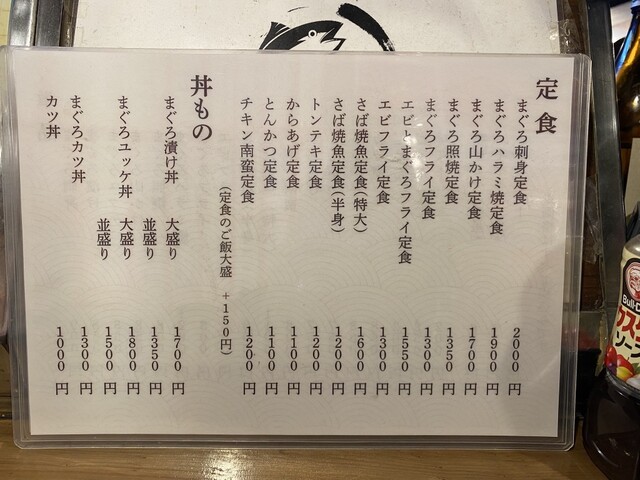 定食
まぐろ刺身定食 2000円
まぐろハラミ焼定食 1900円
まぐろ山かけ定食 1700円
まぐろ照焼定食 1350円
まぐろフライ定食 1300円
エビとまぐろフライ定食 1550円
エビフライ定食 1300円
さば焼魚定食(特大) 1600円
さば焼魚定食(半身) 1200円
トンテキ定食 1200円
からあげ定食 1100円
とんかつ定食 1100円
チキン南蛮定食 1200円
(定食のご飯大盛 +150円)
丼もの
まぐろ漬け丼 大盛り 1700円
並盛り 1350円
まぐろユッケ丼 大盛り 1800円
並盛り 1500円
まぐろカツ丼 1300円
カツ丼 1000円